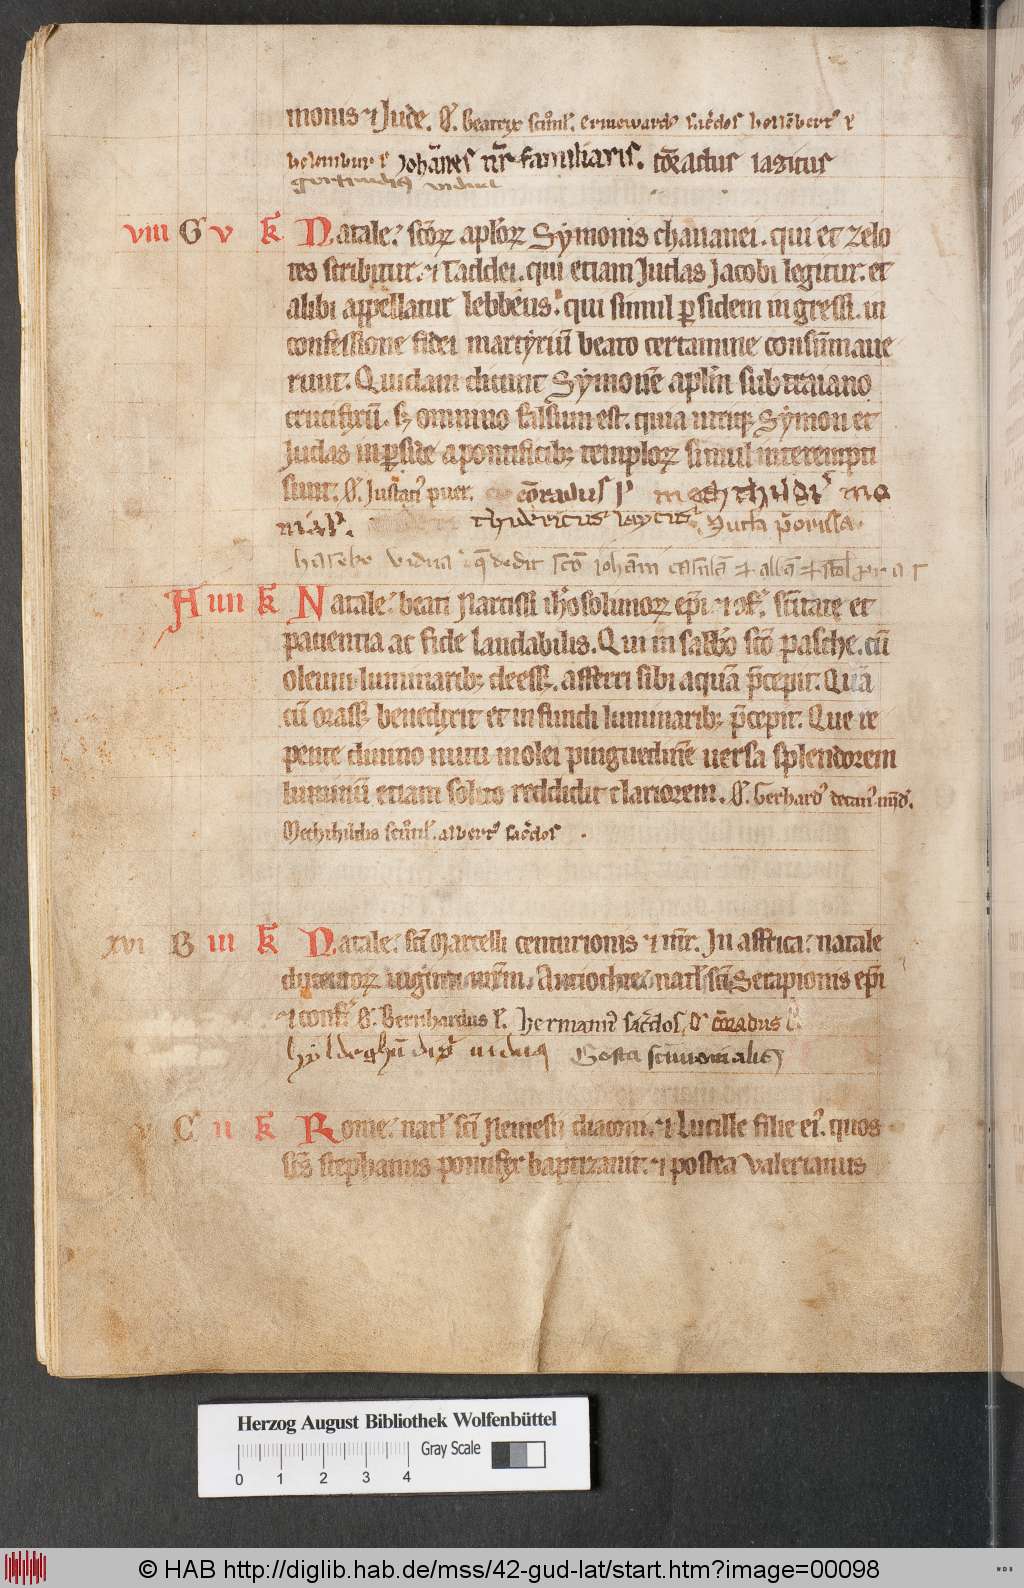 monis ⁊ Jude. O. Beatrix scīmł. ermewardꝰ sac̄dos
Johānes nr̄ familiaris. cōradus laẏcus
gertrudis vidua
viii G v k̄ Natale. sc̄oꝝ aplōꝝ Sẏmonis chananei. qui et zelo
tes scribitur. ⁊ Taddei. qui etiam Judas Jacobi legitur. et
alibi appellatur lebbeus. qui simul ꝑsidem in gressi. in
confessione fidei martẏriū beato certamine consūmaue
runt. Quidam dicunt Sẏmonē aplm̄ sub traiano
crucifixū. sꝫ omnino falsum est. quia utiqꝫ Sẏmon et
Judas in ꝑside a pontificibꝫ temploꝝ simul interempti
sunt. O. Justatꝰ puer. cōradus
thidericus laycus
vidua q̄ dedit sc̄o iohām
A iiii k̄ Natale. beati Narcissi iherosolimoꝝ ep̄i. ⁊ ɔf. sc̄itate et
pacientia ac fide laudabilis. Qui in sabb̄o sc̄o pasche. cū
oleum luminaribꝫ deessꝫ. afferri sibi aquā p̄cepit. Quā
cū orassꝫ benedixit et in fundi luminaribꝫ p̄cepit. Que re
pente diuino nutu in olei pinguedinē uersa splendorem
luminū etiam solito reddidit clariorem. O. Gerhardꝰ decanꝰ
Mechthildis scīmł. albertꝰ sac̄dos
xvi B iii k̄ Natale. sc̄i Marcelli centurionis ⁊ mr̄. In affrica. natale
ducentoꝝ uiginti mr̄m. Antiochie. natł sc̄i Serapionis ep̄i
⁊ conf. O. Bernhardus ł. hermanꝰ sac̄dos. O cōradus
hẏldeghūdis uidua Gosta
v C ii k̄ Rome. natł sc̄i Nemesii diaconi. ⁊ Lucille filie eiꝰ. quos
sc̄s stephanus pontifex baptizauit. ⁊ postea Valerianus
Herzog August Bibliothek Wolfenbüttel
Gray Scale
0 1 2 3 4
© HAB http://diglib.hab.de/mss/42-gud-lat/start.htm?image=00098